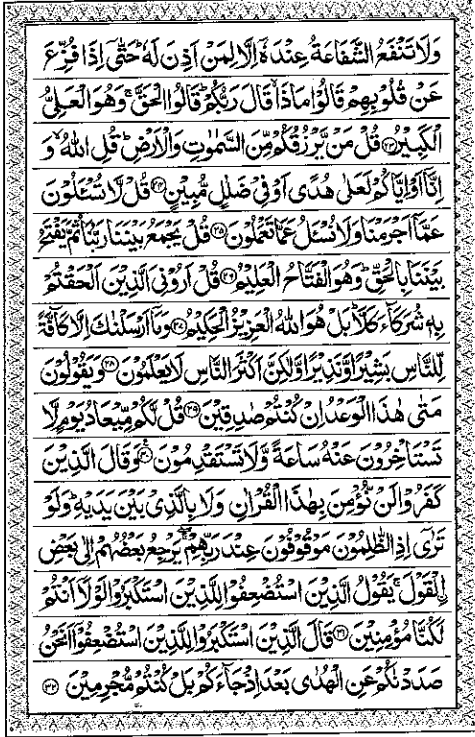 وَلَا تَنْفَعُ الشَّفَاعَةُ عِنْدَهٗٓ اِلَّا لِمَنْ اَذِنَ لَهٗ ؕ حَتّٰۤی اِذَا فُزِّعَ
عَنْ قُلُوْبِهِمْ قَالُوْا مَاذَا ۙ قَالَ رَبُّكُمْ ؕ قَالُوا الْحَقَّ ۚ وَهُوَ الْعَلِیُّ
الْكَبِیْرُ ﴿۲۳﴾ قُلْ مَنْ یَّرْزُقُكُمْ مِّنَ السَّمٰوٰتِ وَالْاَرْضِ ؕ قُلِ اللّٰهُ ۙ وَ
اِنَّاۤ اَوْ اِیَّاكُمْ لَعَلٰی هُدًی اَوْ فِیْ ضَلٰلٍ مُّبِیْنٍ ﴿۲۴﴾ قُلْ لَّا تُسْـَٔلُوْنَ
عَمَّاۤ اَجْرَمْنَا وَلَا نُسْـَٔلُ عَمَّا تَعْمَلُوْنَ ﴿۲۵﴾ قُلْ یَجْمَعُ بَیْنَنَا رَبُّنَا ثُمَّ یَفْتَحُ
بَیْنَنَا بِالْحَقِّ ؕ وَهُوَ الْفَتَّاحُ الْعَلِیْمُ ﴿۲۶﴾ قُلْ اَرُوْنِیَ الَّذِیْنَ اَلْحَقْتُمْ
بِهٖ شُرَكَآءَ كَلَّا ؕ بَلْ هُوَ اللّٰهُ الْعَزِیْزُ الْحَكِیْمُ ﴿۲۷﴾ وَمَاۤ اَرْسَلْنٰكَ اِلَّا كَآفَّةً
لِّلنَّاسِ بَشِیْرًا وَّنَذِیْرًا وَّلٰكِنَّ اَكْثَرَ النَّاسِ لَا یَعْلَمُوْنَ ﴿۲۸﴾ وَیَقُوْلُوْنَ
مَتٰی هٰذَا الْوَعْدُ اِنْ كُنْتُمْ صٰدِقِیْنَ ﴿۲۹﴾ قُلْ لَّكُمْ مِّیْعَادُ یَوْمٍ لَّا
تَسْتَاْخِرُوْنَ عَنْهُ سَاعَةً وَّلَا تَسْتَقْدِمُوْنَ ﴿۳۰﴾ وَقَالَ الَّذِیْنَ
كَفَرُوْا لَنْ نُّؤْمِنَ بِهٰذَا الْقُرْاٰنِ وَلَا بِالَّذِیْ بَیْنَ یَدَیْهِ ؕ وَلَوْ
تَرٰۤی اِذِ الظّٰلِمُوْنَ مَوْقُوْفُوْنَ عِنْدَ رَبِّهِمْ ۖۚ یَرْجِعُ بَعْضُهُمْ اِلٰی بَعْضِ
اِۨلْقَوْلَ ۚ یَقُوْلُ الَّذِیْنَ اسْتُضْعِفُوْا لِلَّذِیْنَ اسْتَكْبَرُوْا لَوْلَاۤ اَنْتُمْ
لَكُنَّا مُؤْمِنِیْنَ ﴿۳۱﴾ قَالَ الَّذِیْنَ اسْتَكْبَرُوْا لِلَّذِیْنَ اسْتُضْعِفُوْۤا اَنَحْنُ
صَدَدْنٰكُمْ عَنِ الْهُدٰی بَعْدَ اِذْ جَآءَكُمْ بَلْ كُنْتُمْ مُّجْرِمِیْنَ ﴿۳۲﴾